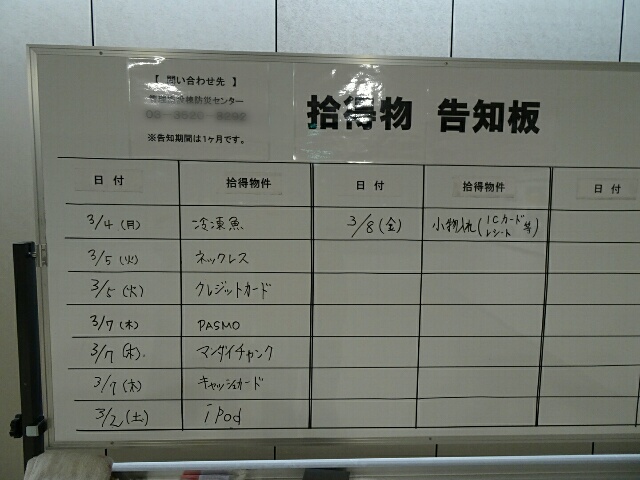 【 問い合わせ先 】
防災センター
※告知期間は1ヶ月です。
拾得物 告知板
日 付 拾得物件 日 付 拾得物件 日 付
3/4 (月) 冷凍魚 3/8 (金) 小物入れ (ICカード レシート 等)
3/5 (火) ネックレス
3/5 (火) クレジットカード
3/7 (木) PASMO
3/7 (木) マンダイチャンク
3/7 (木) キャッシュカード
3/2 (土) iPod